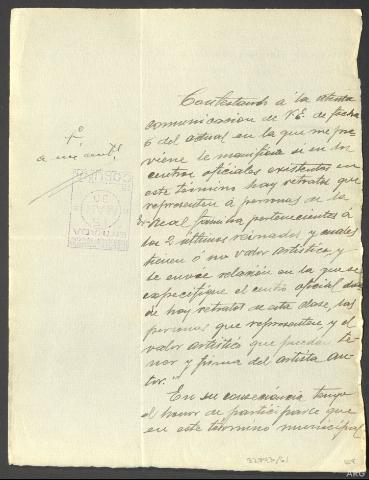 Contestando á la atenta
comunicacion de V.E. de fecha
6 del actual en la que me pre
viene le manifieste si en los
centros oficiales existentes en
este término hay retratos que
representen á personas de la
Real familia pertenecientes á
los 2 ultimos reinados y cuales
tienen ó no valor artistico, y
se envíe relación en la que se
especifique el centro oficial don
de hay retratos de esta clase, las
personas que representen, y el
valor artístico que puedan te
ner y firma del artista au
tor."
En su consecuencia tengo
el honor de participarle que
en este término municipal
ENTRADA
ARG